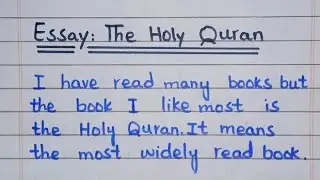 Essay: The Holy Quran
I have read many books but
the book I like most is
the Holy Quran. It means
the most widely read book.